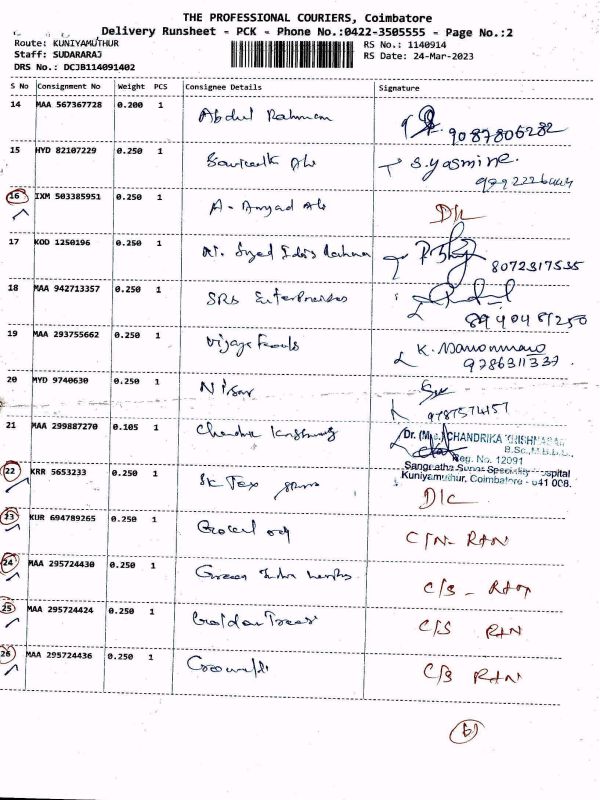 THE PROFESSIONAL COURIERS, Coimbatore
Delivery Runsheet - PCK - Phone No.:0422-3505555 - Page No.:2
Route: KUNIYAMUTHUR RS No.: 1140914
Staff: SUDARARAJ RS Date: 24-Mar-2023
DRS No.: DCJB114091402
S No Consignment No Weight PCS Consignee Details Signature
14 MAA 567367728 0.200 1 Abdul Rahman 9087806282
15 HYD 82107229 0.250 1 S.yasmine.
16 IXM 503385951 0.250 1 A. Amjad Ali D/C
17 KOD 1250196 0.250 1 Syed Idris Rahman 8072317535
18 MAA 942713357 0.250 1 SRS Enterprises 8940481250
19 MAA 293755662 0.250 1 Vijaya K. Manonmani 9786311337
20 MYD 9740630 0.250 1 Nisar 9787574157
21 MAA 299887270 0.105 1 Chandra
Dr. (Mrs.) CHANDRIKA KRISHNASAMI
B.Sc., M.B.B.S.,
Reg. No. 12091
Sangeetha Super Speciality Hospital
Kuniyamuthur, Coimbatore - 641 008.
22 KRR 5653233 0.250 1 SK Tex D/C
23 KUR 694789265 0.250 1 C/N- RTN
24 MAA 295724430 0.250 1 Green India C/S - RTN
25 MAA 295724424 0.250 1 Golden Trees C/S RTN
26 MAA 295724436 0.250 1 C/S RTN
6)